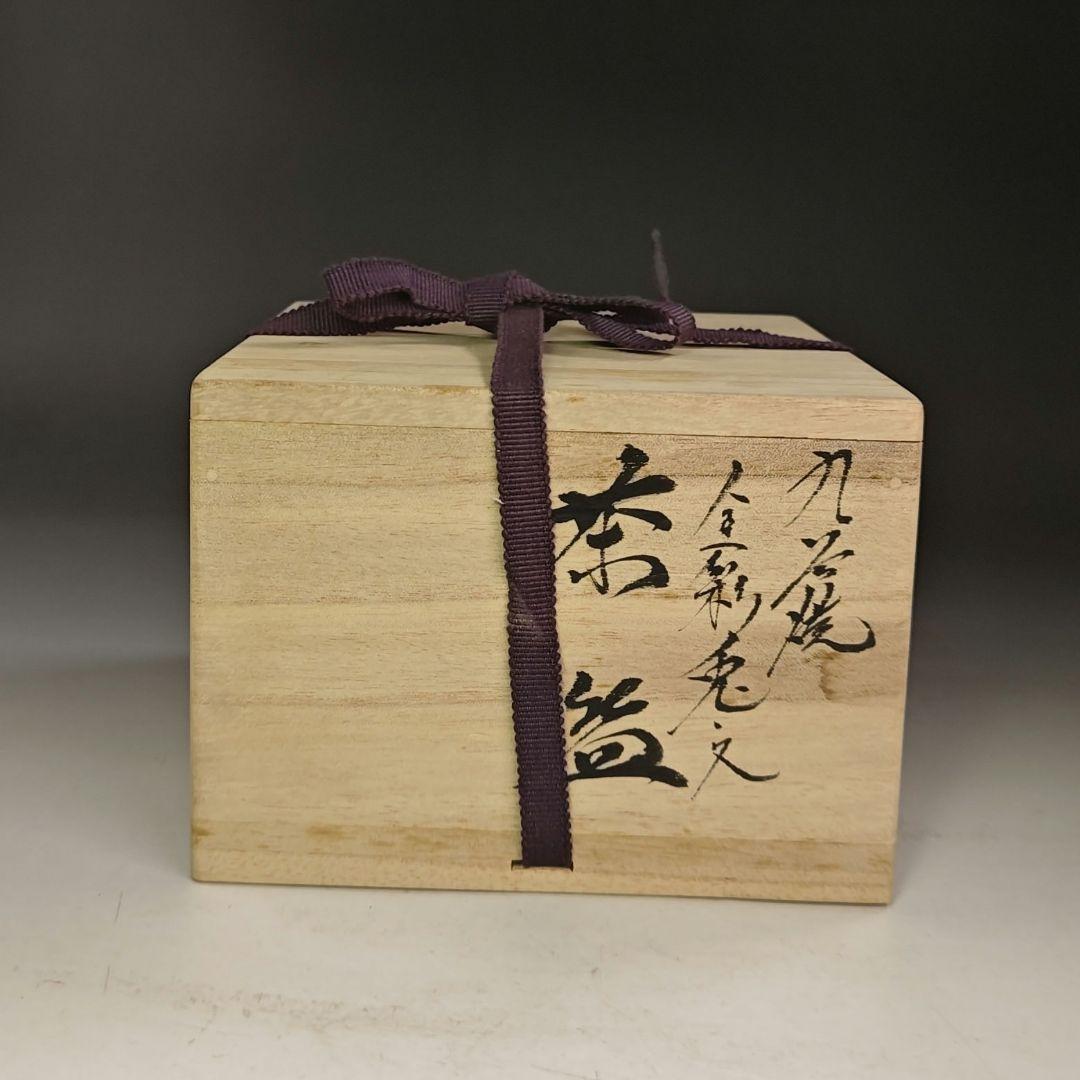 九谷焼
金彩兎文
茶盌